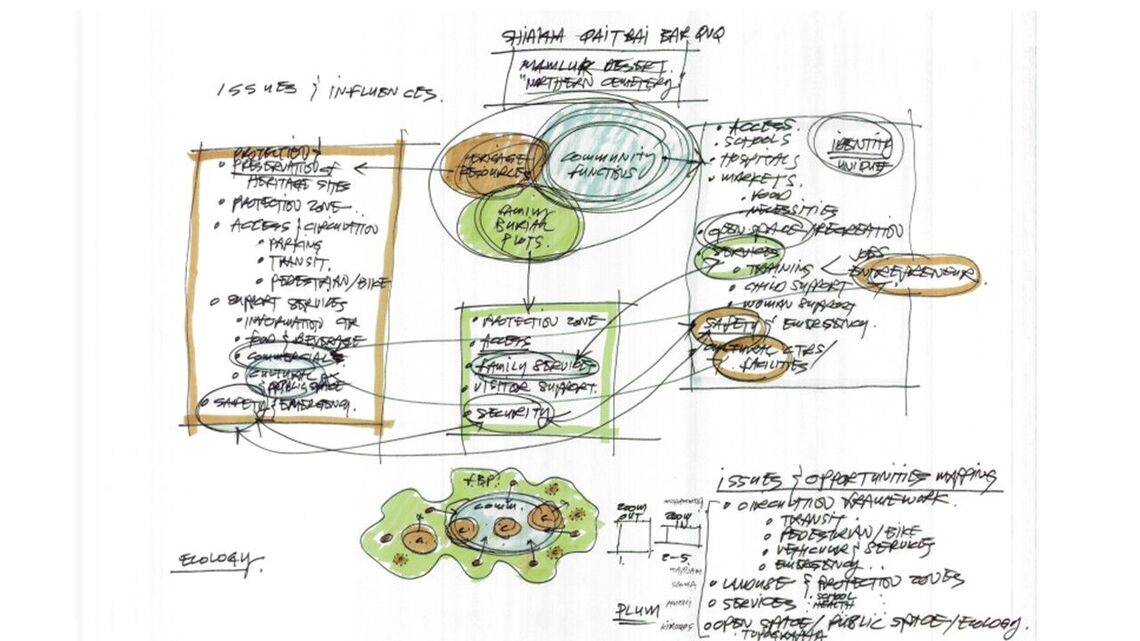 SHIAKHA QAITBAI BARQUQ
MAMLUK DESERT
"NORTHERN CEMETERY"
ISSUES & INFLUENCES.
HERITAGE
RESOURCES
COMMUNITY
FUNCTIONS
FAMILY
BURIAL
PLOTS.
PROTECTION
• PRESERVATION OF
HERITAGE SITES
• PROTECTION ZONE
• ACCESS & CIRCULATION
• PARKING
• TRANSIT.
• PEDESTRIAN/BIKE
• SUPPORT SERVICES
• INFORMATION CTR
• FOOD & BEVERAGE
• COMMERCIAL
• CULTURAL
PUBLIC SPACE
• SAFETY & EMERGENCY.
• PROTECTION ZONE
• ACCESS
• FAMILY SERVICES
• VISITOR SUPPORT.
• SECURITY
• ACCESS.
• SCHOOLS
• HOSPITALS
• MARKETS.
FOOD
NECESSITIES
• OPEN SPACE/RECREATION
SERVICES
• TRAINING < JOBS
ENTREPRENEUR
• CHILD SUPPORT
• WOMAN SUPPORT
• SAFETY & EMERGENCY.
• CULTURAL CTRS/
FACILITIES/
IDENTITY
UNIQUE
F.B.P.
COMM.
ECOLOGY
ZOOM
OUT
1.
ZOOM
IN.
2-5.
PLUM
ISSUES & OPPORTUNITIES MAPPING
• CIRCULATION FRAMEWORK.
• TRANSIT.
• PEDESTRIAN/BIKE
• VEHICULAR & SERVICES
• EMERGENCY..
• LANDUSE & PROTECTION ZONES
• SERVICES • SCHOOL
HEALTH
• OPEN SPACE/PUBLIC SPACE/ECOLOGY.